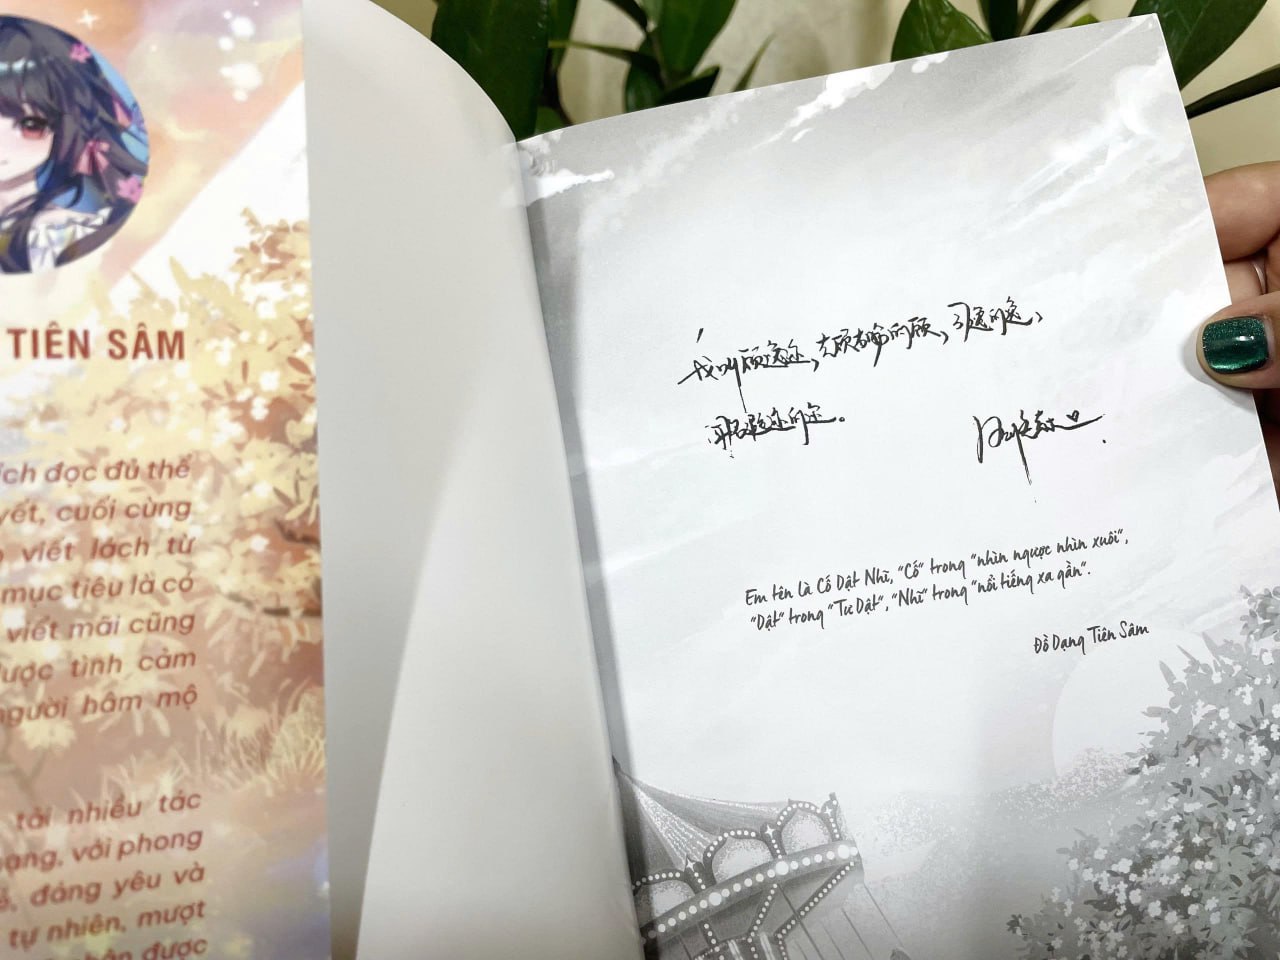 TIÊN SÂM
đọc đủ thể
cuối cùng
viết lách từ
mục tiêu là có
viết mãi cũng
tình cảm
người hâm mộ
tải nhiều tác
với phong
đáng yêu và
tự nhiên, mượt
được
我叫顾逸迩,左顾右盼的顾,司逸的逸,
闻名遐迩的迩。
Em tên là Cố Dật Nhĩ, "Cố" trong "nhìn ngược nhìn xuôi",
"Dật" trong "Tư Dật", "Nhĩ" trong "nổi tiếng xa gần".
Đồ Dạng Tiên Sâm